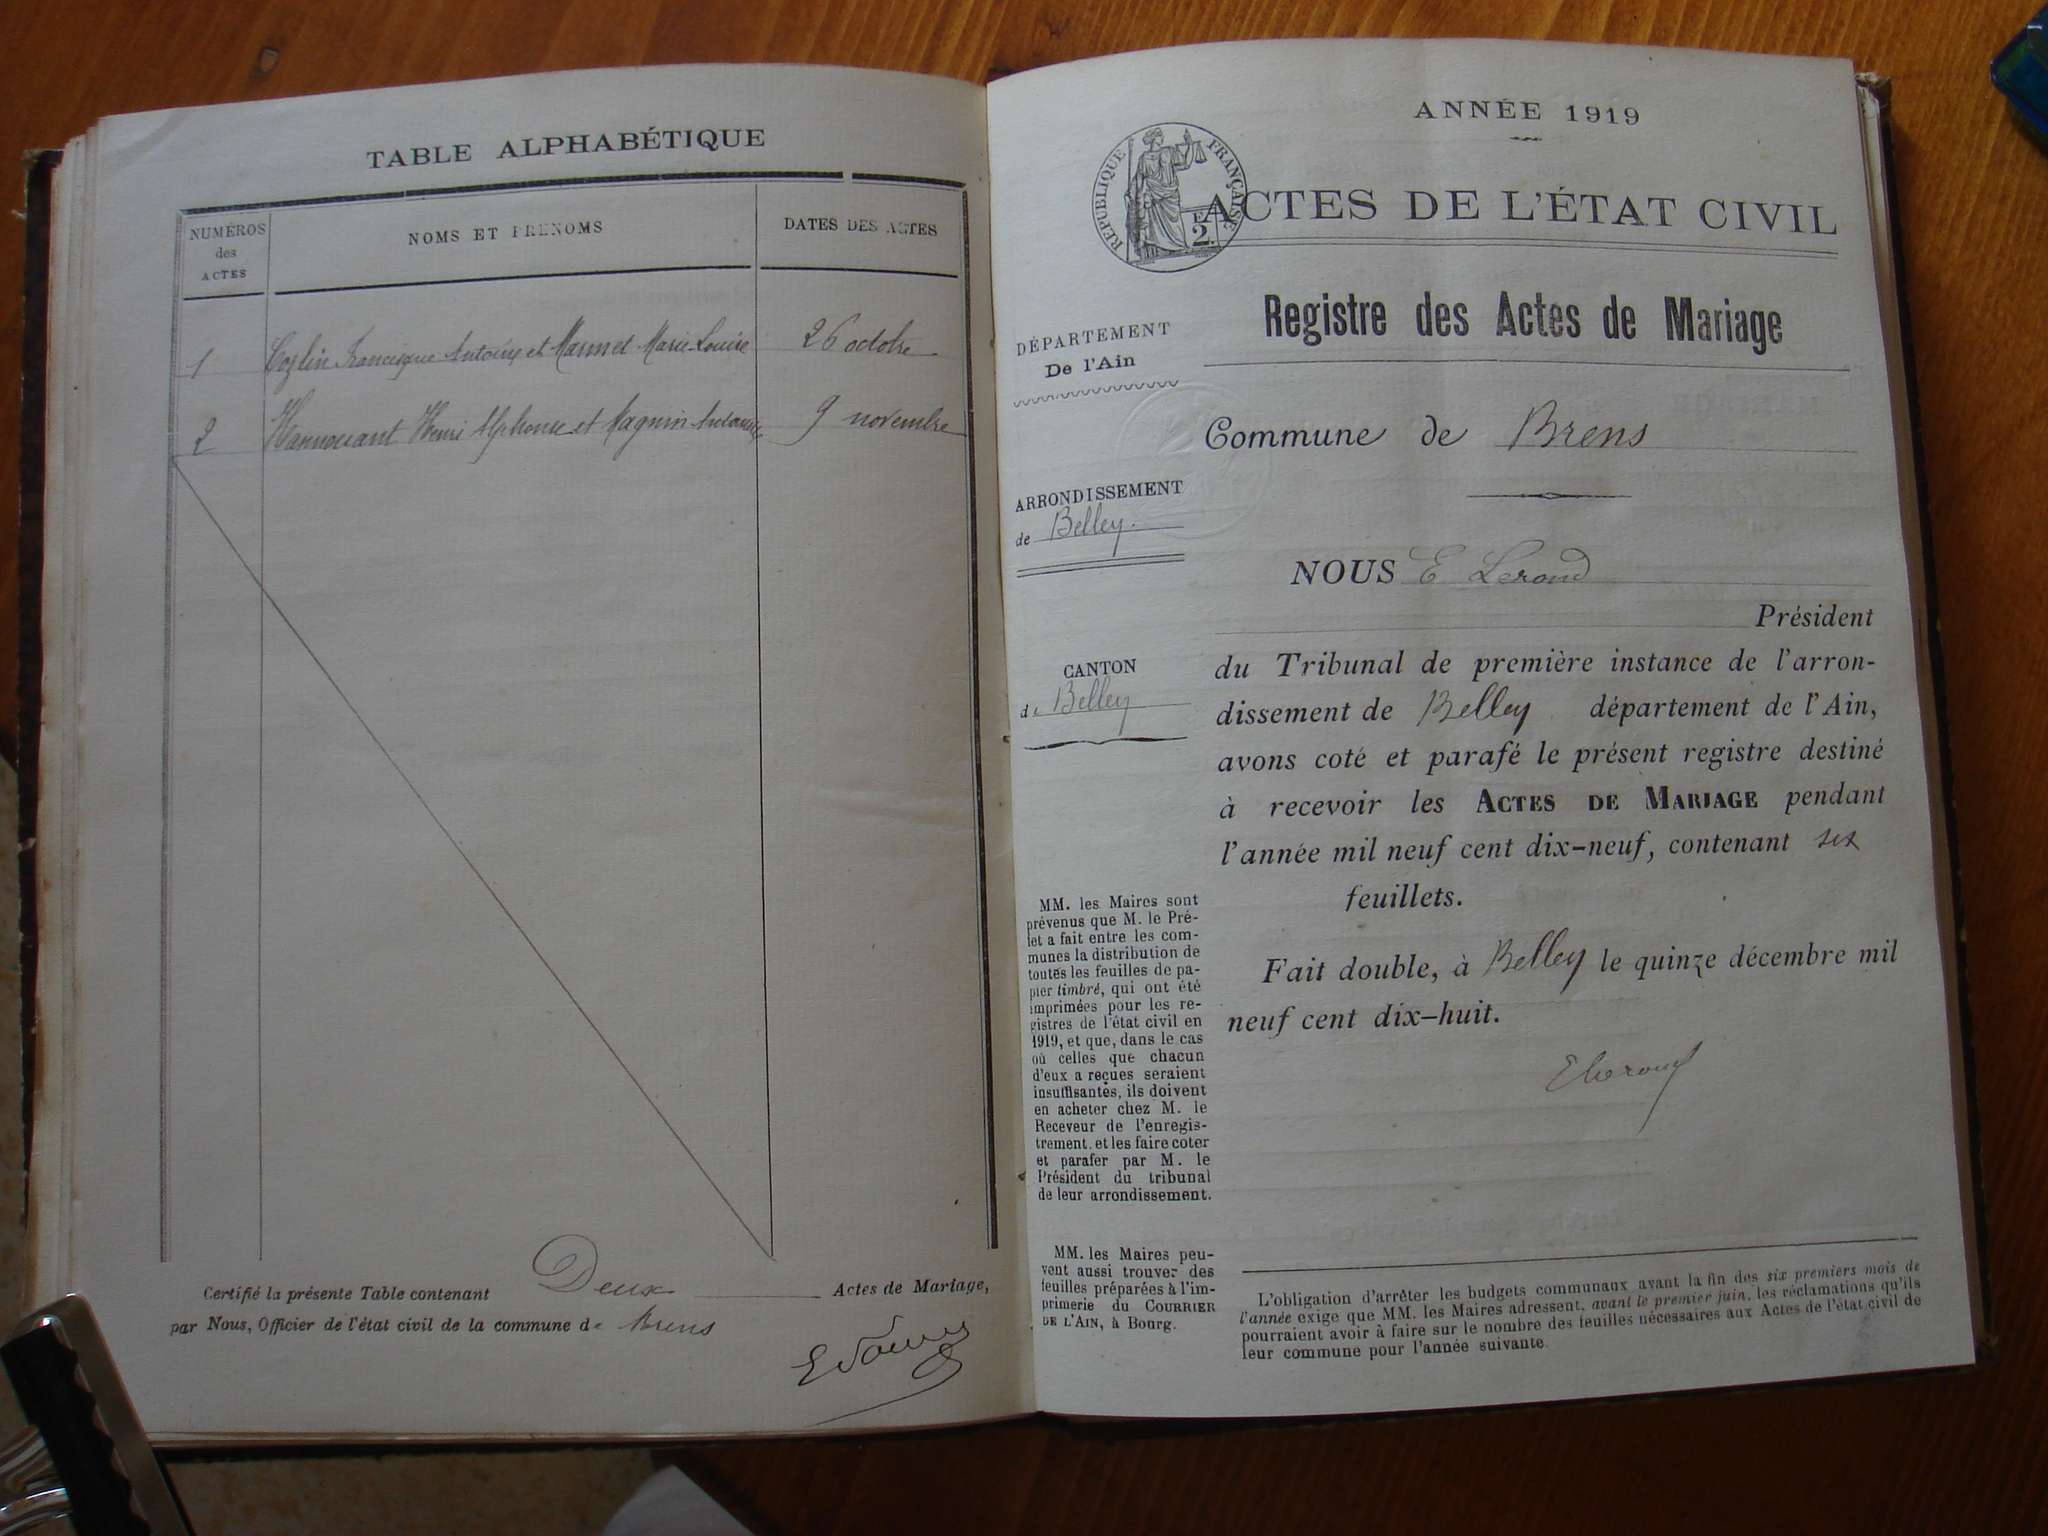 TABLE ALPHABÉTIQUE
NUMÉROS
des
ACTES
NOMS ET PRÉNOMS
DATES DES ACTES
1 Francisque Antoine et Marie Louise 26 octobre
2 Henri Alphonse et Magnin 9 novembre
Certifié la présente Table contenant Deux Actes de Mariage,
par Nous, Officier de l'état civil de la commune de Brens
ANNÉE 1919
RÉPUBLIQUE FRANÇAISE
2
ACTES DE L'ÉTAT CIVIL
Registre des Actes de Mariage
DÉPARTEMENT
De l'Ain
Commune de Brens
ARRONDISSEMENT
de Belley.
NOUS E Lerond
Président
CANTON
de Belley
du Tribunal de première instance de l'arron-
dissement de Belley département de l'Ain,
avons coté et parafé le présent registre destiné
à recevoir les ACTES DE MARIAGE pendant
l'année mil neuf cent dix-neuf, contenant six
feuillets.
Fait double, à Belley le quinze décembre mil
neuf cent dix-huit.
ELerond
MM. les Maires sont
prévenus que M. le Pré-
fet a fait entre les com-
munes la distribution de
toutes les feuilles de pa-
pier timbré, qui ont été
imprimées pour les re-
gistres de l'état civil en
1919, et que, dans le cas
où celles que chacun
d'eux a reçues seraient
insuffisantes, ils doivent
en acheter chez M. le
Receveur de l'enregis-
trement, et les faire coter
et parafer par M. le
Président du tribunal
de leur arrondissement.
MM. les Maires peu-
vent aussi trouver des
feuilles préparées à l'im-
primerie du COURRIER
DE L'AIN, à Bourg.
L'obligation d'arrêter les budgets communaux avant la fin des six premiers mois de
l'année exige que MM. les Maires adressent, avant le premier juin, les réclamations qu'ils
pourraient avoir à faire sur le nombre des feuilles nécessaires aux Actes de l'état civil de
leur commune pour l'année suivante.